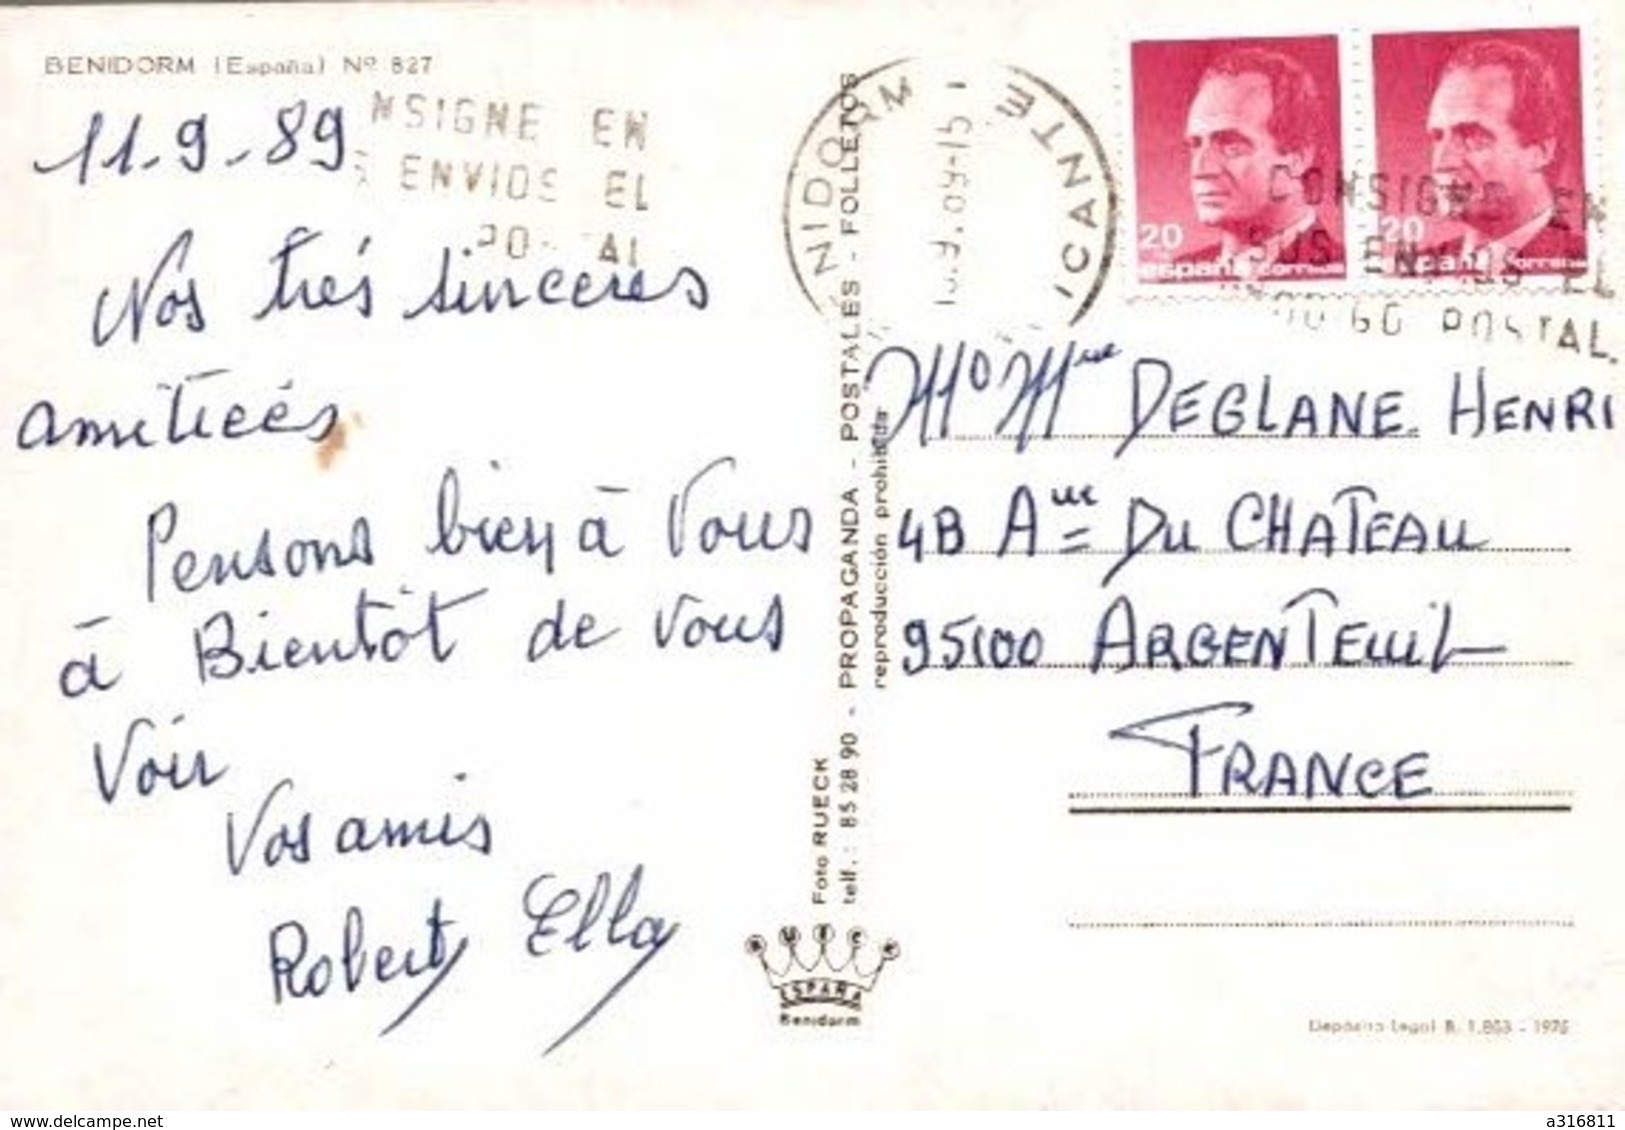 BENIDORM (España) Nº 827
11-9-89
NSIGNE EN
ENVIOS EL
Nos très sinceres
amitieés
Pensons bien à Vous
à Bientôt de Vous
Voir
Vos amis
Robert Ella
NIDORM
ICANTE
PROPAGANDA - POSTALES - FOLLETOS
reproducción prohibida
Foto RUECK
telf.: 85 28 90 -
RUECK
ESPAÑA
Benidorm
20
españa correos
20
españa correos
CONSIGNE EN
SUS ENVIOS EL
POSTAL.
Mº Mme DEGLANE HENRI
4B Aue DU CHATEAU
95100 ARGENTEUIL
FRANCE
Depósito Legal B. 1.853 - 1975
www.delcampe.net
a316811